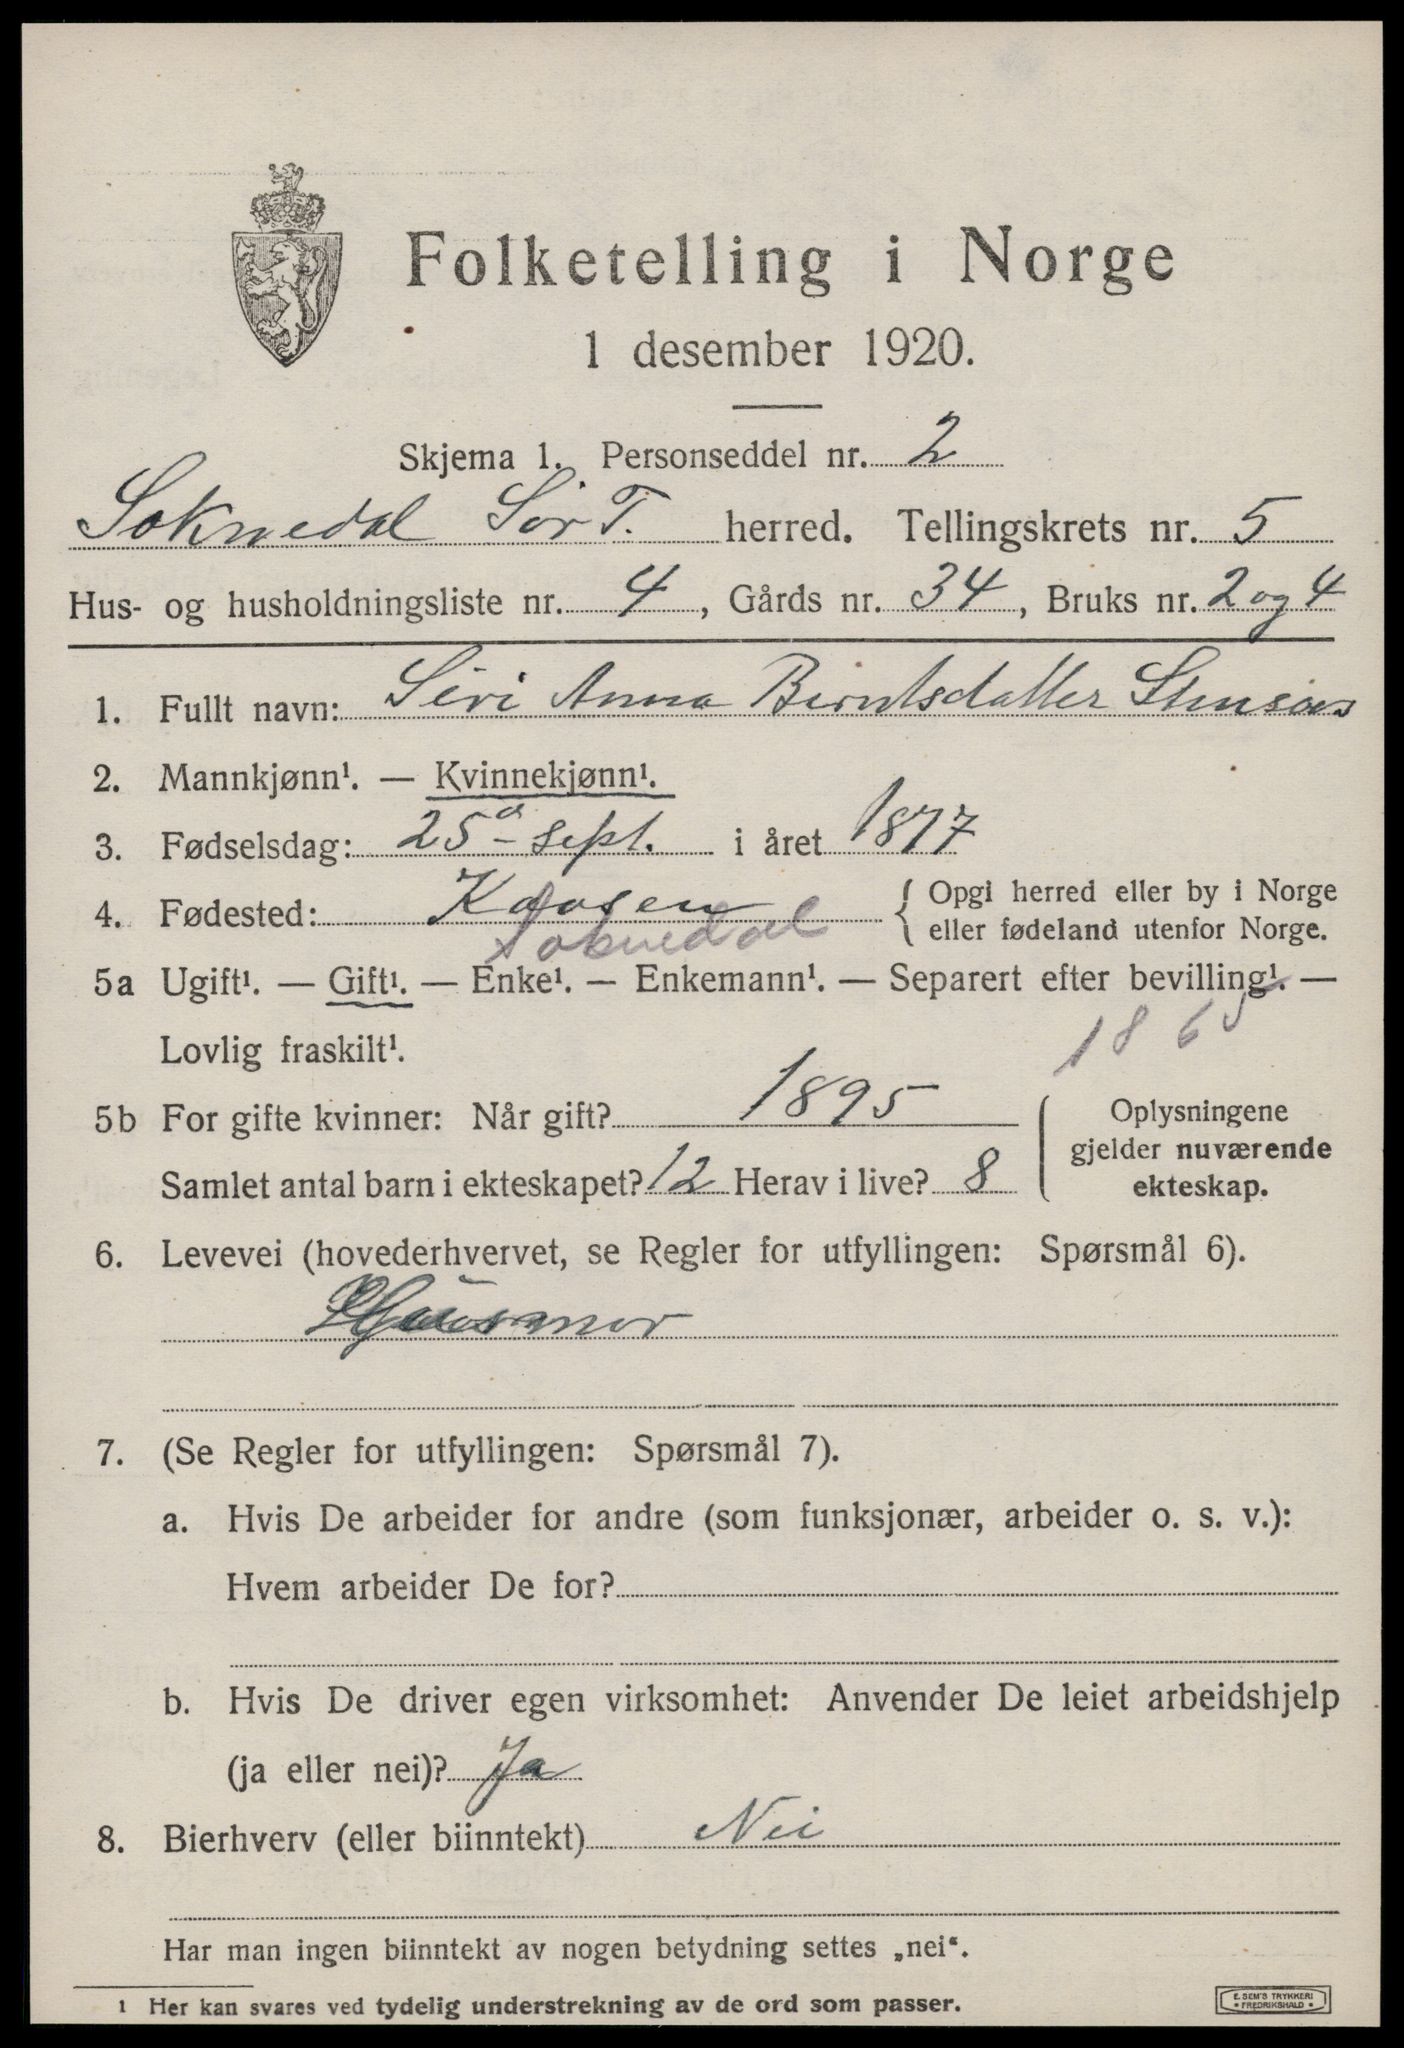 Folketelling i Norge
1 desember 1920.
Skjema 1. Personseddel nr. 2
Soknedal Sør T. herred. Tellingskrets nr. 5
Hus- og husholdningsliste nr. 4, Gårds nr. 34, Bruks nr. 2 og 4
1. Fullt navn: Siri Anna Berntsdatter Stensaas
2. Mannkjønn¹. — Kvinnekjønn¹.
3. Fødselsdag: 25d- sept. i året 1877
4. Fødested: { Opgi herred eller by i Norge
eller fødeland utenfor Norge.
Soknedal
5a Ugift¹. — Gift¹. — Enke¹. — Enkemann¹. — Separert efter bevilling¹. —
Lovlig fraskilt¹.
1865
5b For gifte kvinner: Når gift? 1895
Samlet antal barn i ekteskapet? 12 Herav i live? 8
Oplysningene
gjelder nuværende
ekteskap.
6. Levevei (hovederhvervet, se Regler for utfyllingen: Spørsmål 6).
Husmor
7. (Se Regler for utfyllingen: Spørsmål 7).
a. Hvis De arbeider for andre (som funksjonær, arbeider o. s. v.):
Hvem arbeider De for?
b. Hvis De driver egen virksomhet: Anvender De leiet arbeidshjelp
(ja eller nei)? Ja
8. Bierhverv (eller biinntekt) Nei
Har man ingen biinntekt av nogen betydning settes „nei“.
1 Her kan svares ved tydelig understrekning av de ord som passer.
E. SEM'S TRYKKERI
• FREDRIKSHALD •